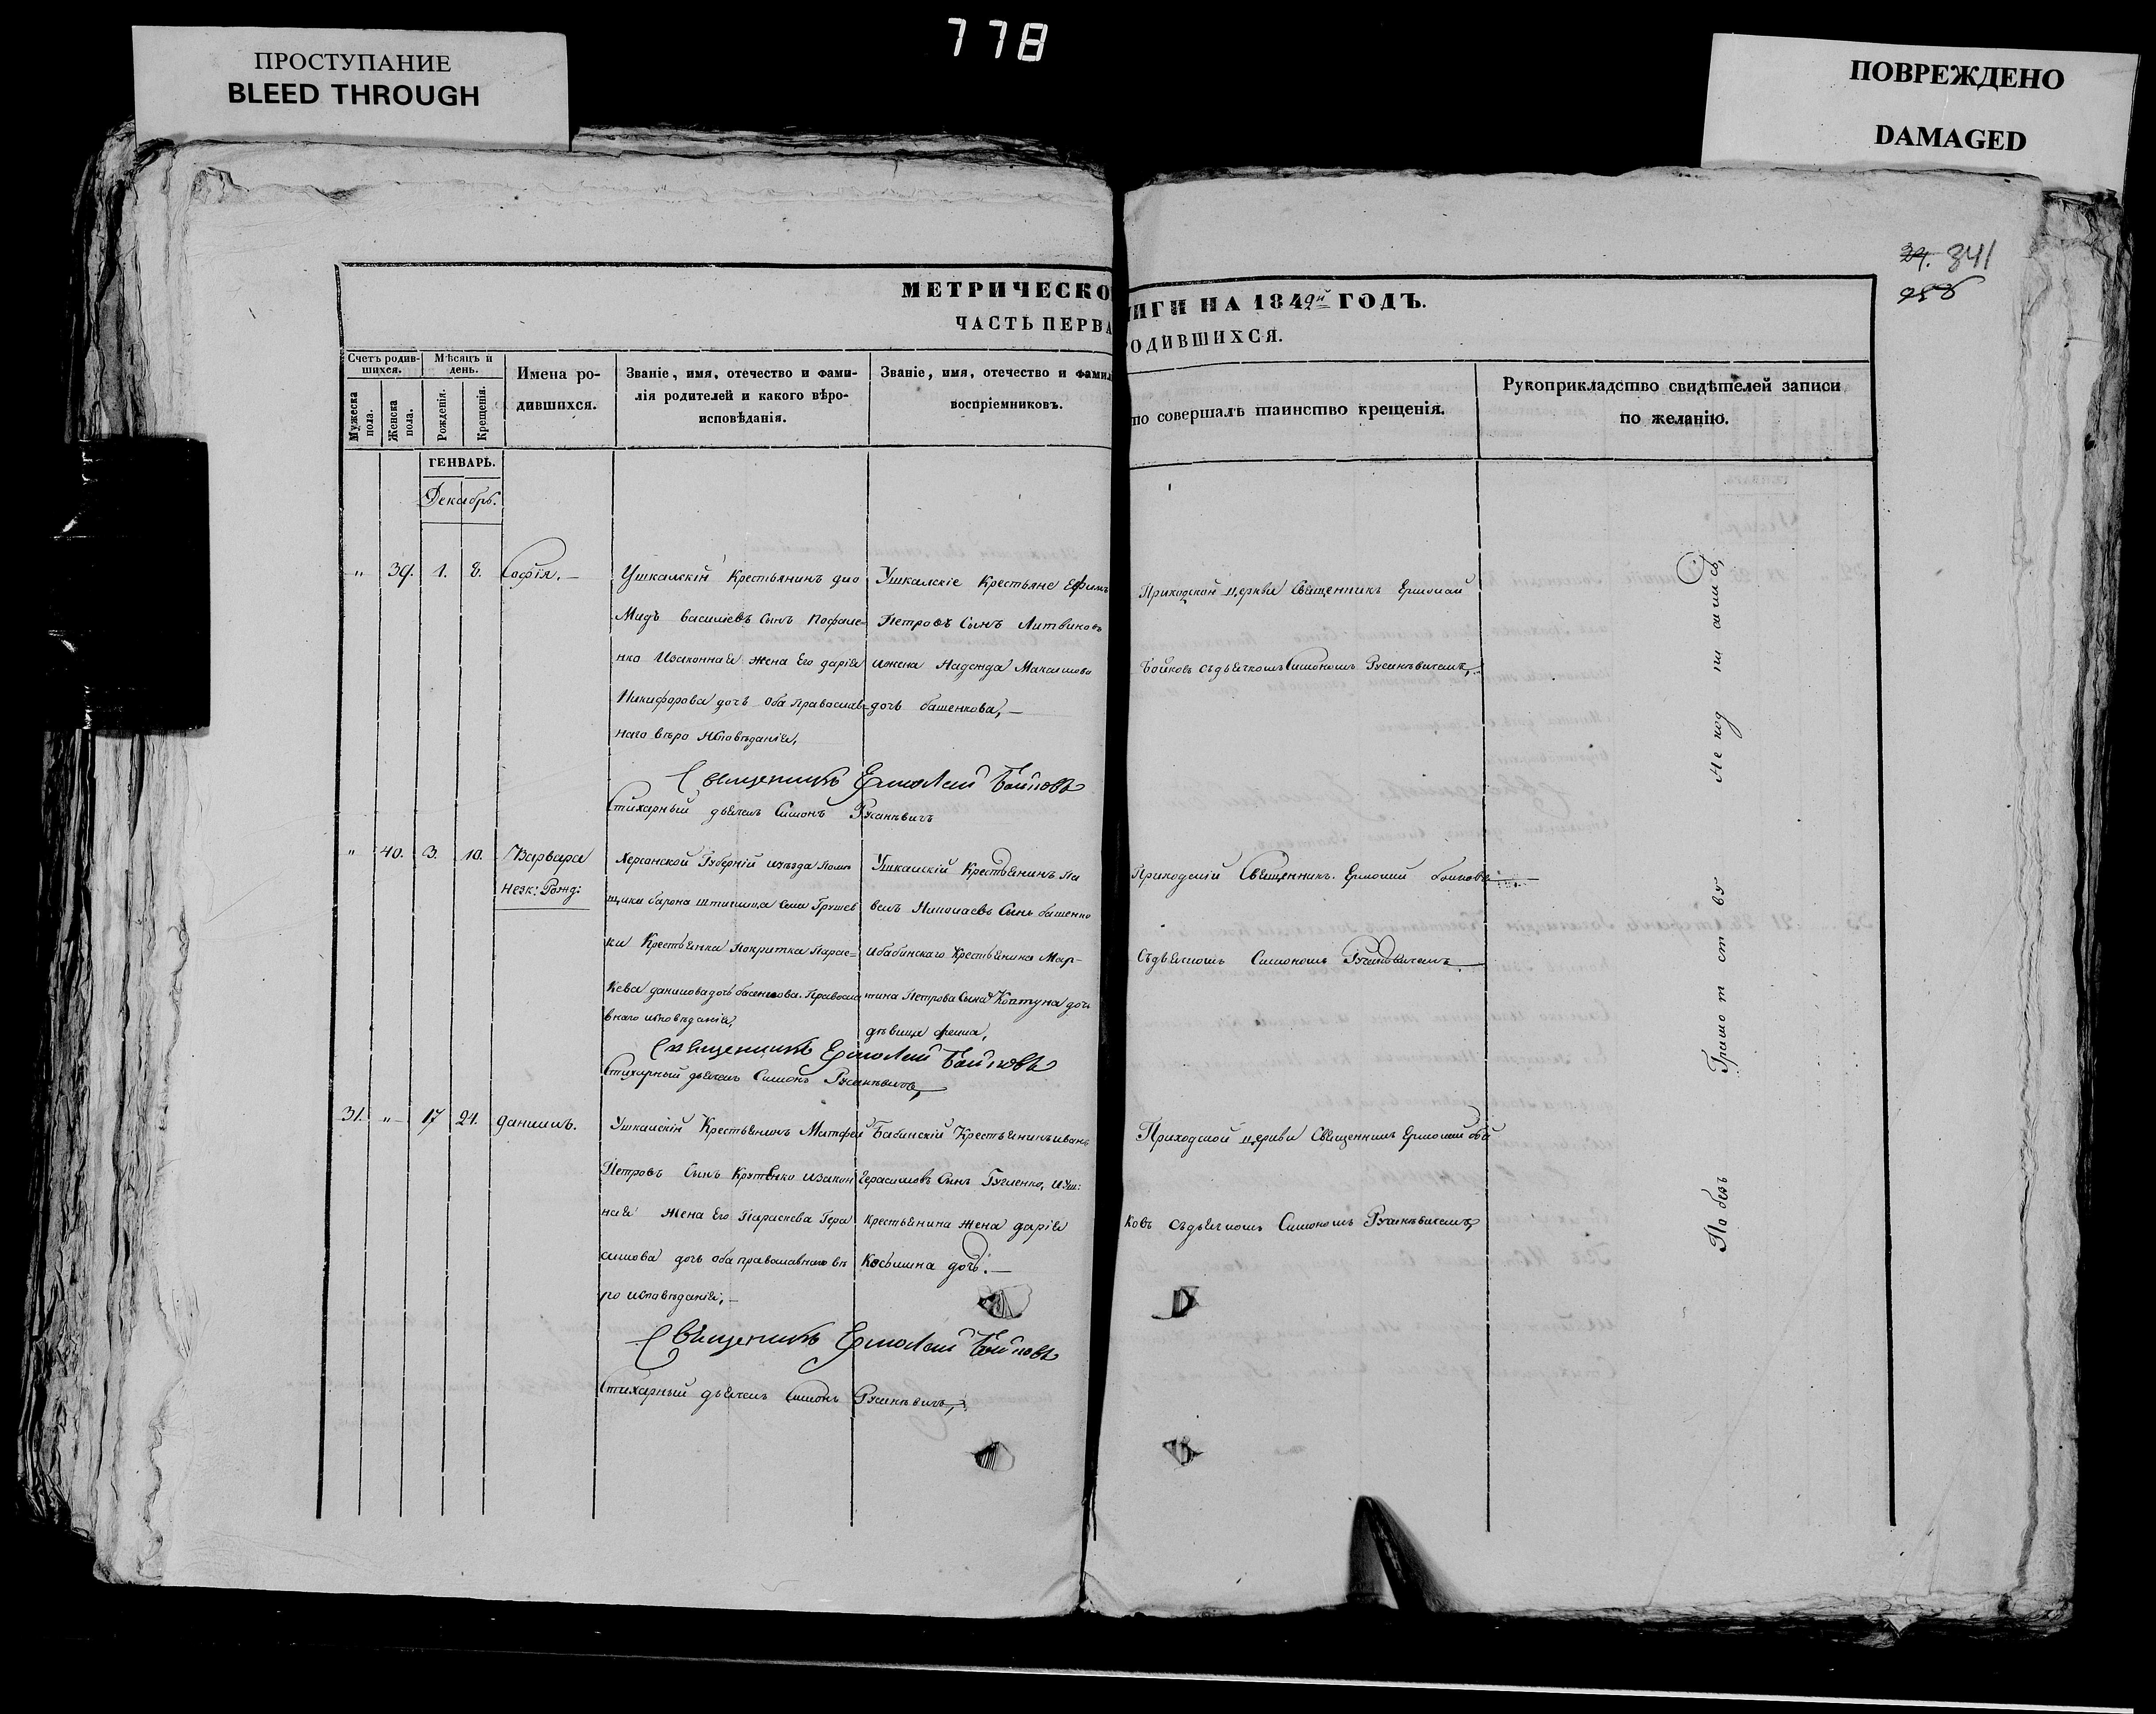 778
ПРОСТУПАНИЕ
BLEED THROUGH
ПОВРЕЖДЕНО
DAMAGED
341
МЕТРИЧЕСКО
ИГИ НА 1849й ГОДЪ.
ЧАСТЬ ПЕРВА
ОДИВШИХСЯ.
Счетъ родив-
шихся.
Мужеска
пола.
Женска
пола.
Мѣсяцъ и
день.
Рожденія.
Крещенія.
Имена ро-
дившихся.
Званіе, имя, отечество и фами-
лія родителей и какого вѣро-
исповѣданія.
Званіе, имя, отечество и фамил
воспріемниковъ.
то совершалъ таинство крещенія.
Рукоприкладство свидѣтелей записи
по желанію.
ГЕНВАРЬ.
Декабрь.
" 39. 1. 8. Софія.
Ушкалскій Крестьянинъ дио
Мидъ василіевъ Сынъ
нко Изаконная жена Его дарія
Никифорова дочь Оба Православ=
наго вѣро Исповѣданія,
Ушкалскіе Крестьяне Ефимъ
Петровъ Сынъ Литвиновъ
ижена Надежда Максимова
дочь башенкова,
Приходской церкви Священникъ Ермолай
Бойковъ Съдьячкомъ Симономъ
Священникъ Ермолай Бойковъ
Стихарный дьячекъ Симонъ
" 40. 3. 10. Варвара
незк: Рожд:
Херсонской Губерній иуѣзда Помѣ
щика барона Штиглица Села Грушев
ки Крестьянка Покритка Парас=
кева данилова дочь Правосла
внаго исповѣданія,
Ушкалскій Крестьянинъ Па
велъ Николаевъ Сынъ башенко
ибабинскаго Крестьянина Мар-
тина Петрова Сына Колтуна дочь
дѣвица
Приходскій Священникъ Ермолай Бойковъ
Съдьячкомъ Симономъ
Священникъ Ермолай Бойковъ
Стихарный дьячекъ Симонъ
31. " 17 24. данилъ.
Ушкалскій Крестьянинъ Матфей
Петровъ Сынъ Крутенко изакон
ная жена Его Параскева Гера
симова дочь оба православнаго вѣ
ро исповѣданія,
Бабинскій Крестьянинъ иванъ
Герасимовъ Сынъ Гугленко, и Уш:
Крестьянина жена дарія
Косьмина дочь.
Приходской церкви Священникъ Ермолай бой
ковъ Съдьячкомъ Симономъ
Священникъ Ермолай Бойковъ
Стихарный дьячекъ Симонъ
По безъ Грамот ст ву Не под пи сались,